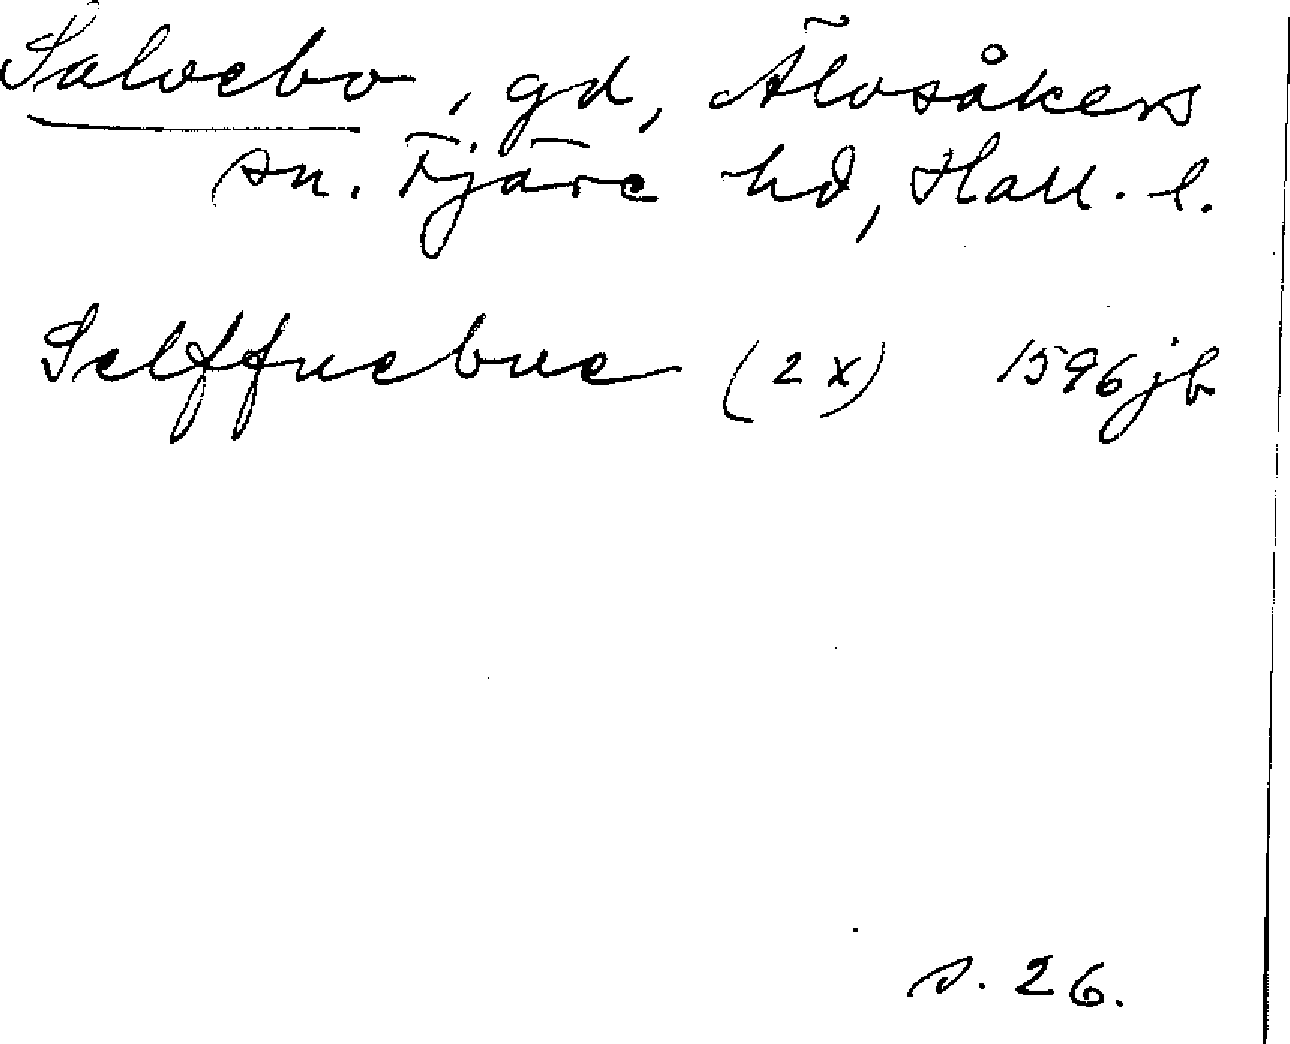 Salvebo, gd, Älvsåkers
sn. Fjäre hd, Hall. l.
Selffuebue (2x) 1596 jb
s. 26.